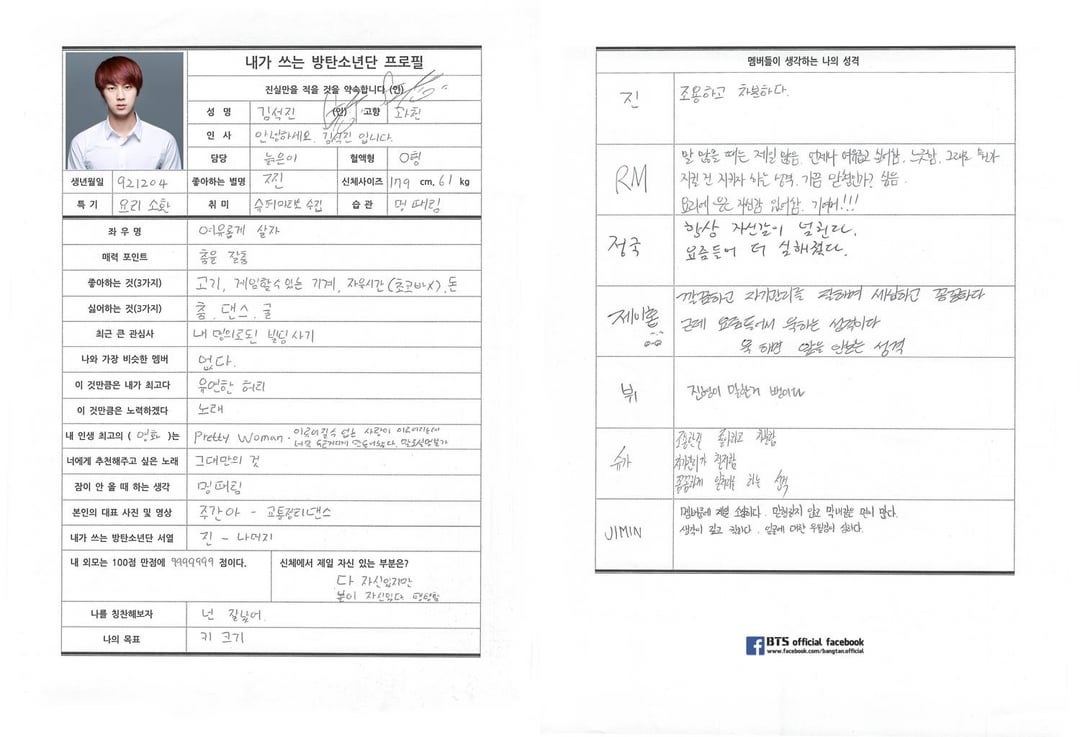 내가 쓰는 방탄소년단 프로필
진실만을 적을 것을 약속합니다 (인)
성 명 김석진 (인) 고향 과천
인 사 안녕하세요. 김석진 입니다.
담당 늙은이 혈액형 O형
생년월일 921204 좋아하는 별명 찐 신체사이즈 179 cm, 61 kg
특 기 요리 소환 취 미 슈퍼마리오 수집 습 관 멍 때림
좌 우 명 여유롭게 살자
매력 포인트 춤을 잘춤
좋아하는 것(3가지) 고기, 게임할수있는 기계, 자유시간(초코바X), 돈
싫어하는 것(3가지) 춤, 댄스, 글
최근 큰 관심사 내 명의로된 빌딩사기
나와 가장 비슷한 멤버 없다.
이 것만큼은 내가 최고다 유연한 허리
이 것만큼은 노력하겠다 노래
내 인생 최고의 ( 영화 )는 Pretty Woman. 이루어질수 없는 사랑이
너에게 추천해주고 싶은 노래 그대만의 것
잠이 안 올 때 하는 생각 멍때림
본인의 대표 사진 및 영상 주간아 - 교통정리댄스
내가 쓰는 방탄소년단 서열 진 - 나머지
내 외모는 100점 만점에 9999999 점이다.
신체에서 제일 자신 있는 부분은?
다 자신있지만
볼이 자신있다 탱탱함
나를 칭찬해보자 넌 잘났어.
나의 목표 키 크기
멤버들이 생각하는 나의 성격
진 조용하고 차분하다.
RM 말 많을 때는 제일 많음. 언제나 여유롭고 싶어함. 느긋함. 그래도
지킬 건 지키자 하는 성격. 가끔 맏형인가? 싶음.
요리에 은근 자신감 있어함. 기여어!!!
정국 항상 자신감이 넘친다.
요즘들어 더 심해졌다.
제이홉 깔끔하고 자기관리를 잘하며 세심하고 꼼꼼하다
근데 요즘들어서 욱하는 성격이다
욱 하면 앞을 안보는 성격
뷔 진형이 말한거 뻥이다
슈가 조용한걸 좋아하고 차분함
자기관리가 철저함
꼼꼼하게 일처리를 하는 성격
JIMIN 멤버중에 제일 소심하다. 맏형같지 않고 막내같은 면이 많다.
생각이 깊고 착하다. 얼굴에 대한 우월감이 심하다.
BTS official facebook
www.facebook.com/bangtan.official